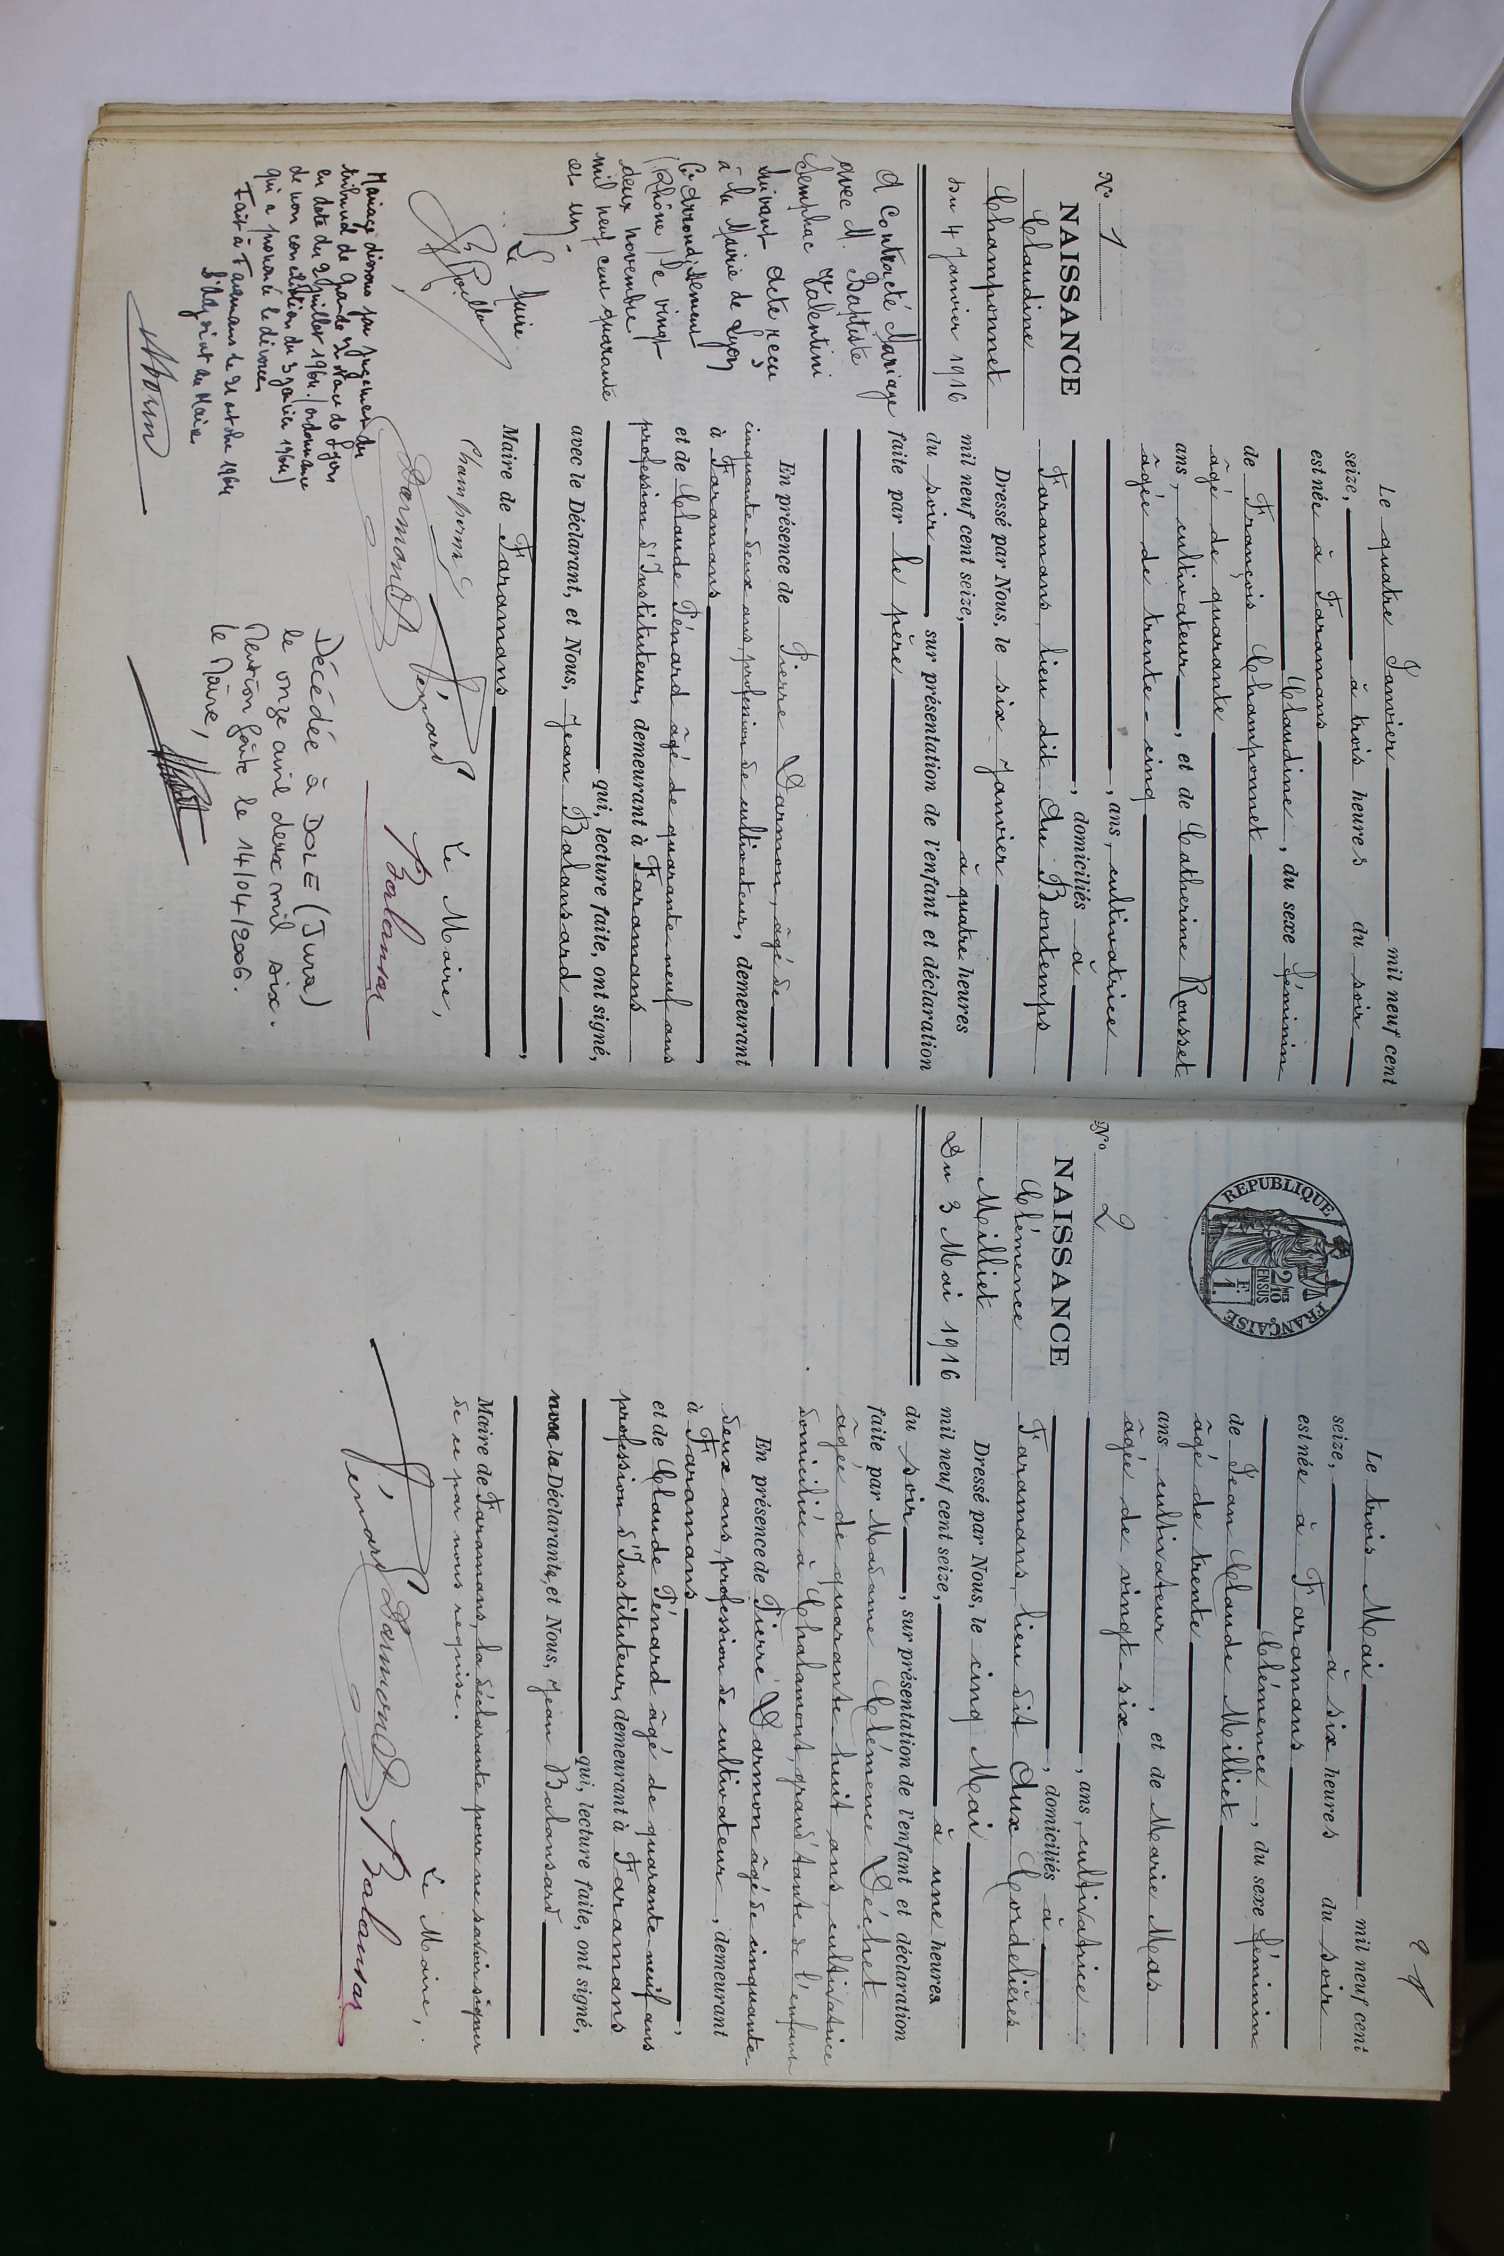 N° 1
NAISSANCE
Claudine
Champonnet
Du 4 Janvier 1916
A Contracté Mariage
avec M. Baptiste
Semphac Valentini
suivant acte recu
à la Mairie de Lyon
Arrondissement
(Rhône) le vingt
deux novembre
mil neuf cent quarante
et un.
Le Maire
Mariage dissous par jugement du
tribunal de Grande Instance de Lyon
en date du 2 juillet 1964 (ordonnance
de non conciliation du 3 janvier 1964)
qui a prononcé le divorce
Fait à Faramans le 21 octobre 1964
L'Adjoint au Maire
Le quatre Janvier mil neuf cent
seize, à trois heures du soir
est née à Faramans
Claudine, du sexe féminin
de François Champonnet
âgé de quarante
ans, cultivateur, et de Catherine Rousset
âgée de trente-cinq
, ans, cultivatrice
, domiciliés à
Faramans, lieu dit Au Bontemps
Dressé par Nous, le six Janvier
mil neuf cent seize, à quatre heures
du soir sur présentation de l'enfant et déclaration
faite par le père
En présence de Pierre Darmon, âgé de
cinquante deux ans, profession de cultivateur, demeurant
à Faramans,
et de Claude Pénard âgé de quarante neuf ans
profession d'Instituteur, demeurant à Faramans
qui, lecture faite, ont signé,
avec le Déclarant, et Nous, Jean Balansard
Maire de Faramans
Le Maire,
Darmond Pénard Balansar
Décédée à DOLE (Jura)
le onze avril deux mil six.
Mention faite le 14/04/2006.
Le Maire,
N° 2
NAISSANCE
Clémence
Milliet
Du 3 Mai 1916
REPUBLIQUE FRANÇAISE
2/10 EN SUS
1 F.
Le trois Mai mil neuf cent
seize, à six heures du soir
est née à Faramans
Clémence, du sexe féminin
de Jean Claude Milliet
âgé de trente
ans cultivateur, et de Marie Mas
âgée de vingt-six
, ans, cultivatrice
, domiciliés à
Faramans, lieu dit Aux Cordelières
Dressé par Nous, le cinq Mai
mil neuf cent seize, à une heures
du soir, sur présentation de l'enfant et déclaration
faite par Madame Clémence Déchet
âgée de quarante huit ans, cultivatrice
domiciliée à Chalamont, grand'tante de l'enfant
En présence de Pierre Darmon âgé de cinquante-
deux ans, profession de cultivateur, demeurant
à Faramans,
et de Claude Pénard âgé de quarante neuf ans
profession d'Instituteur, demeurant à Faramans
qui, lecture faite, ont signé,
la Déclarante, et Nous, Jean Balansard
Maire de Faramans, la déclarante pour ne savoir signer
de ce par nous requise.
Le Maire,
Pénard Darmond Balansar